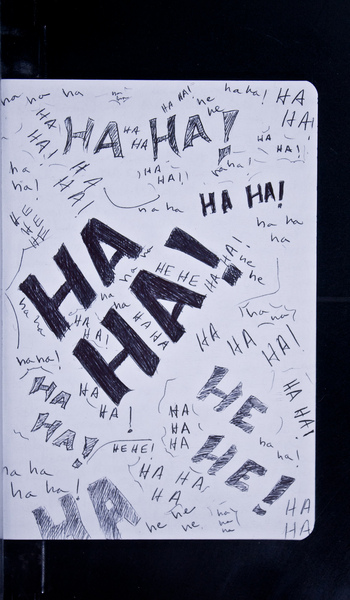 ha ha ha
ha ha!
HA
HA!
HA HA!
he
he
HA
HA!
HA HA!
HA
HA
HA
HA!
HA
HA!
HA
HA!
ha
ha!
HA
HA!
ha ha!
ha ha
HA HA!
ha ha
ha
HE
HE
HE
HA
HA!
HE HE
HA HA!
he
he
ha
ha
ha
ha
ha
HA
HA!
HA HA
ha
ha
HA HA HA!
ha ha!
HA
HA!
HA
HA!
HA
HA
HA
HE
HE!
HA HA!
ha
ha!
HE HE!
ha ha
ha ha ha!
HA HA
HA
HA
he he
he
ha
ha
ha
HA
HA